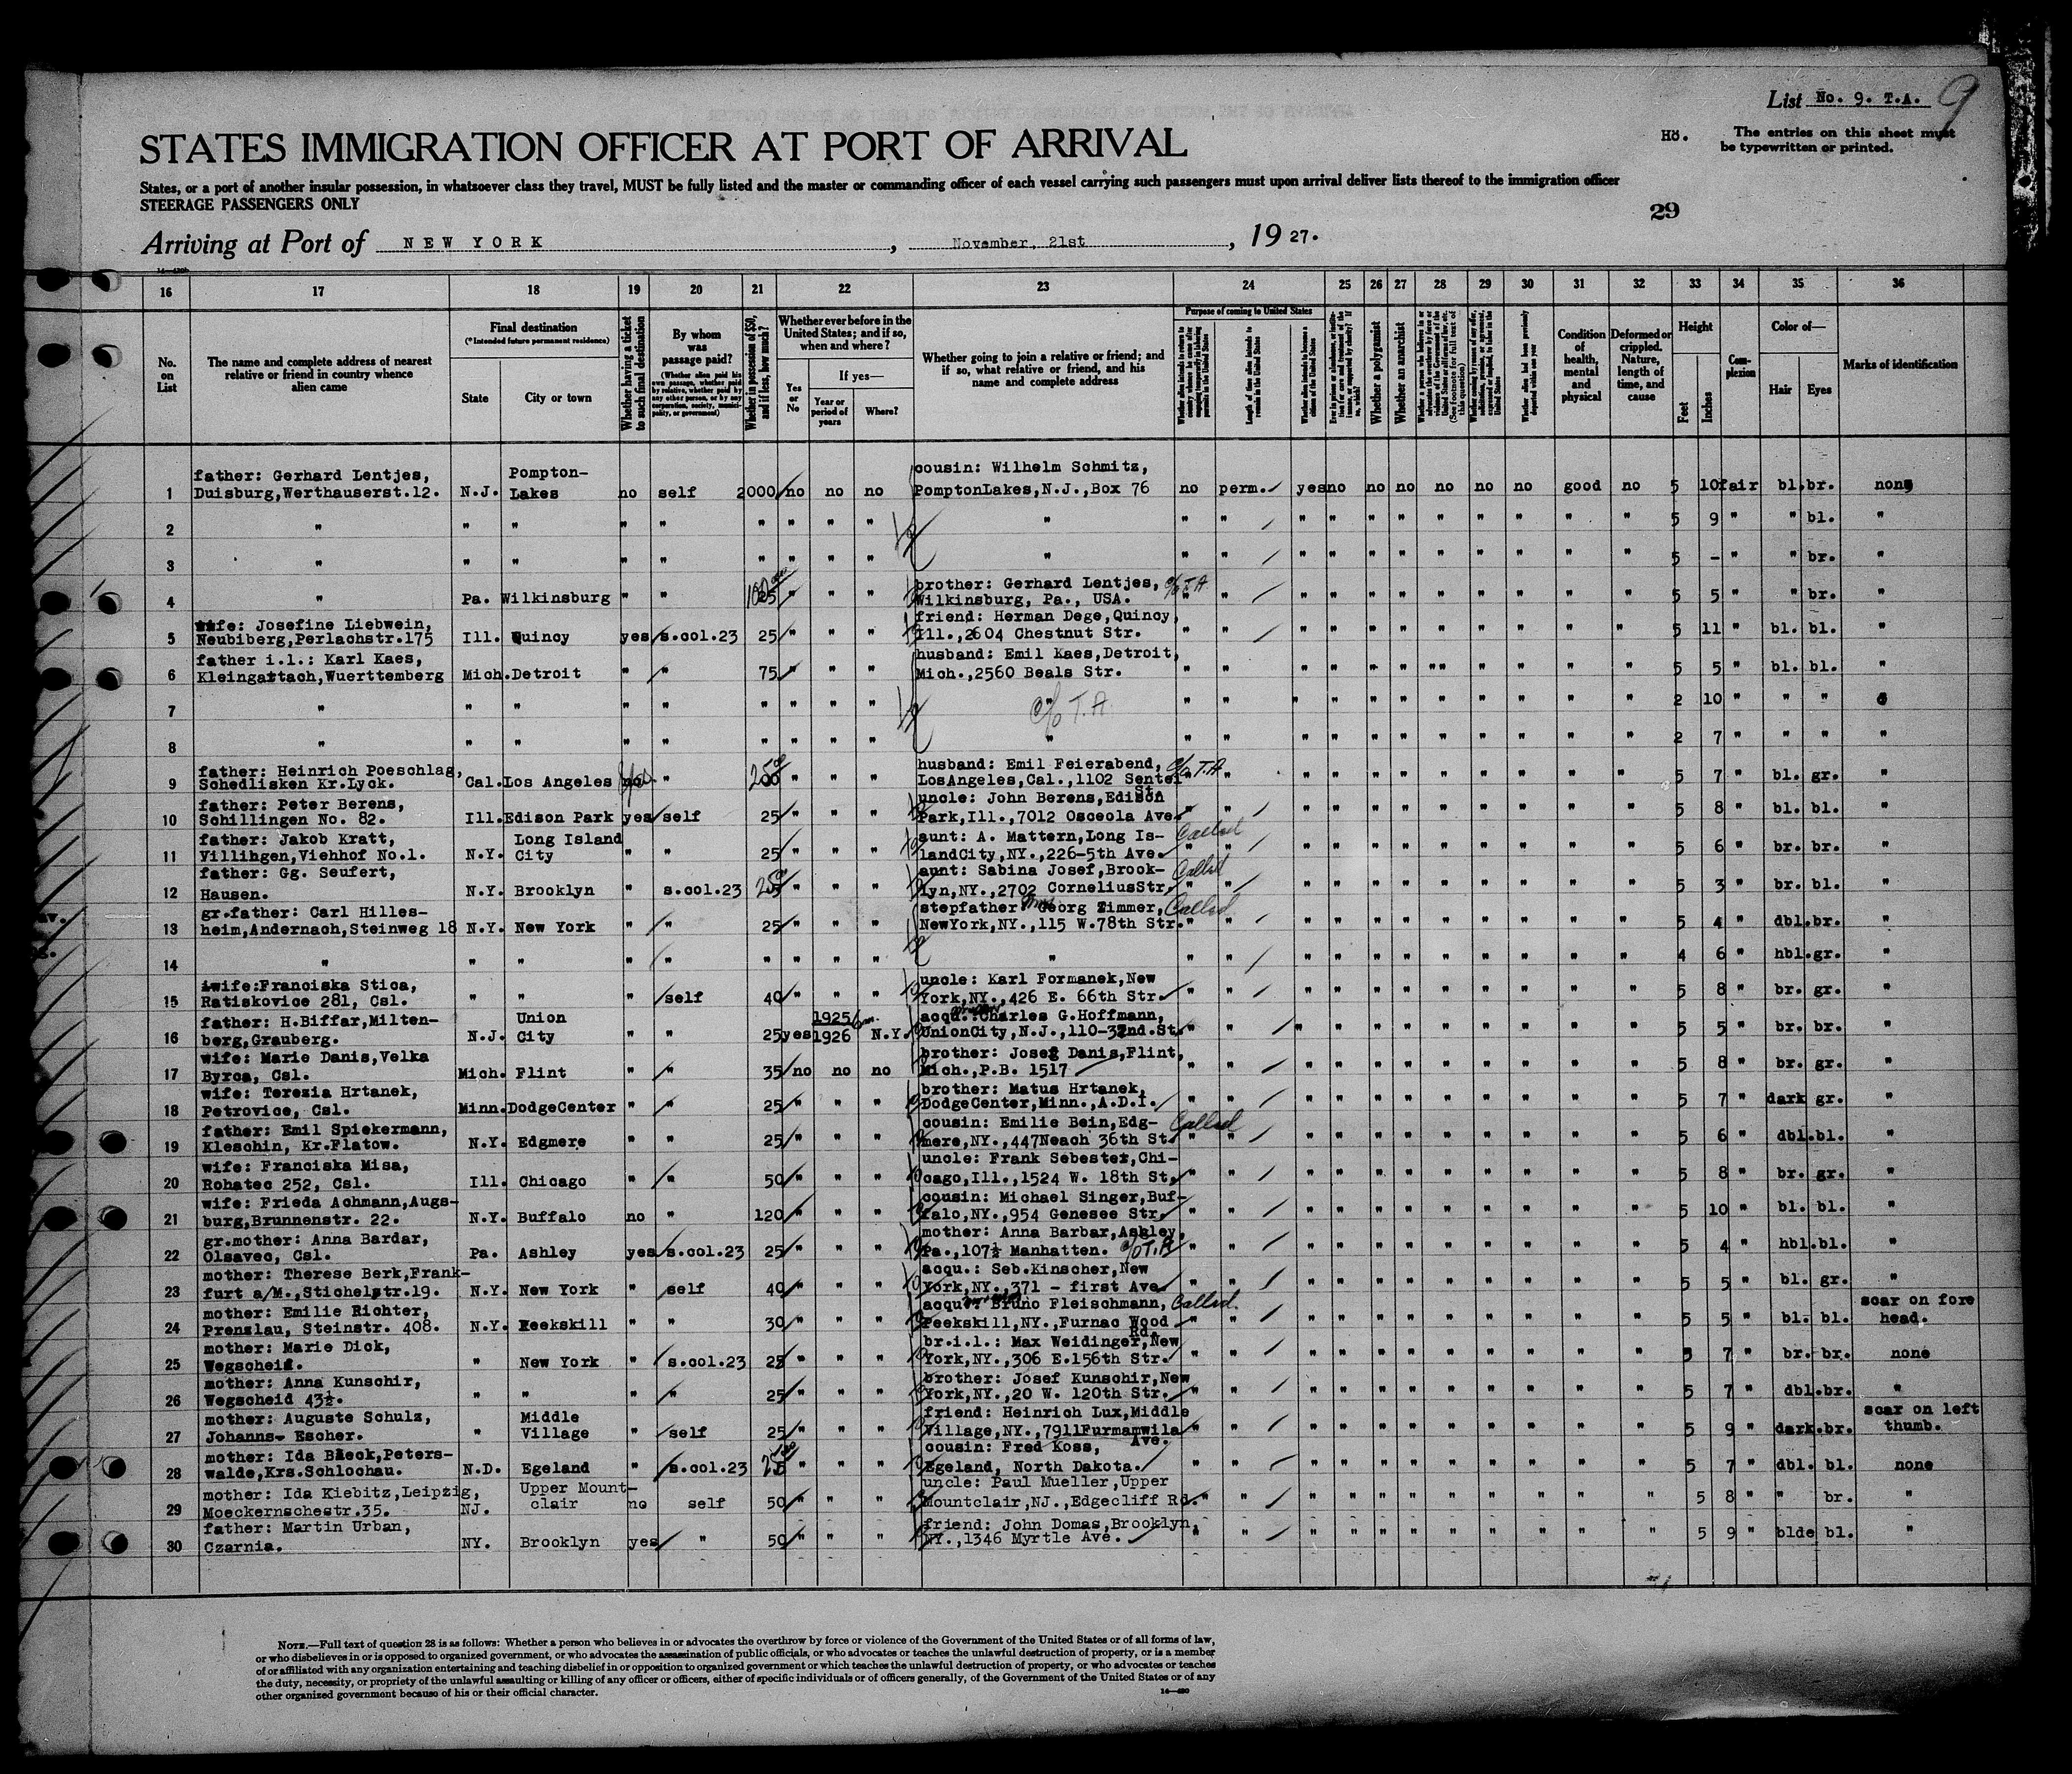 List No. 9. T.A. 9
H8. The entries on this sheet must
be typewritten or printed.
STATES IMMIGRATION OFFICER AT PORT OF ARRIVAL
States, or a port of another insular possession, in whatsoever class they travel, MUST be fully listed and the master or commanding officer of each vessel carrying such passengers must upon arrival deliver lists thereof to the immigration officer
STEERAGE PASSENGERS ONLY
29
Arriving at Port of NEW YORK, November, 21st, 1927.
16 17 18 19 20 21 22 23 24 25 26 27 28 29 30 31 32 33 34 35 36
No. on List
The name and complete address of nearest relative or friend in country whence alien came
Final destination
(*Intended future permanent residence)
State
City or town
Whether having a ticket to such final destination
By whom was passage paid?
(Whether alien paid his own passage, whether paid by relative, whether paid by any other person, or by any corporation, society, municipality, or government)
Whether in possession of $50, and if less, how much?
Whether ever before in the United States; and if so, when and where?
Yes or No
If yes—
Year or period of years
Where?
Whether going to join a relative or friend; and if so, what relative or friend, and his name and complete address
Purpose of coming to United States
Length of time alien intends to remain in the United States
Whether alien intends to become a citizen of the United States
Whether a polygamist
Whether an anarchist
Condition of health, mental and physical
Deformed or crippled. Nature, length of time, and cause
Height
Feet
Inches
Complexion
Color of—
Hair
Eyes
Marks of identification
1 father: Gerhard Lentjes, Duisburg,Werthauserst.12. N.J. Pompton-Lakes no self 2000 no no no cousin: Wilhelm Schmitz, PomptonLakes,N.J.,Box 76 no perm. yes no no no no no no good no 5 10 fair bl. br. none
2 " " " " " " " " " " " " " " " " " " " " " " 5 9 " " bl. "
3 " " " " " " " " " " " " " " " " " " " " " " 5 - " " br. "
4 " Pa. Wilkinsburg " " " " " brother: Gerhard Lentjes, Wilkinsburg, Pa., USA. c/o T.A. " " " " " " " " " " " 5 5 " " br. "
5 wife: Josefine Liebwein, Neubiberg,Perlachstr.175 Ill. Quincy yes s.col.23 25 " " " friend: Herman Dege,Quincy, Ill.,2604 Chestnut Str. " " " " " " " " " " " 5 11 " bl. bl. "
6 father i.l.: Karl Kaes, Kleingartach,Wuerttemberg Mich. Detroit " " 75 " " " husband: Emil Kaes,Detroit, Mich.,2560 Beals Str. " " " " " " "" " " " " 5 5 " bl. bl. "
7 " " " " " " " " " " c/o T.A. " " " " " " " " " " " 2 10 " " "
8 " " " " " " " " " " " " " " " " " " " " " 2 7 " " " "
9 father: Heinrich Poeschlag, Schedlisken Kr.Lyck. Cal. Los Angeles yes " " " " husband: Emil Feierabend, LosAngeles,Cal.,1102 Senter St. c/o T.A " " " " " " " " " " 5 7 " bl. gr. "
10 father: Peter Berens, Schillingen No. 82. Ill. Edison Park yes self 25 " " " uncle: John Berens,Edison Park,Ill.,7012 Osceola Ave. " " " " " " " " " " " 5 8 " bl. bl. "
11 father: Jakob Kratt, Villingen,Viehhof No.1. N.Y. Long Island City " " 25 " " " aunt: A. Mattern,Long Is-landCity,NY.,226-5th Ave. Called " " " " " " " " " " " 5 6 " br. br. "
12 father: Gg. Seufert, Hausen. N.Y. Brooklyn " s.col.23 25 " " " aunt: Sabina Josef,Brook-lyn,NY.,2702 CorneliusStr. Called " " " " " " " " " " " 5 3 " br. bl. "
13 gr.father: Carl Hilles-heim,Andernach,Steinweg 18 N.Y. New York " " 25 " " " stepfather Georg Zimmer, NewYork,NY.,115 W.78th Str. Called " " " " " " " " " " 5 4 " dbl. br. "
14 " " " " " " " " " " " " " " " " " " " " " 4 6 " hbl. gr. "
15 wife:Franciska Stica, Ratiskovice 281, Csl. " " " self 40 " " " uncle: Karl Formanek,New York,NY.,426 E. 66th Str. " " " " " " " " " " " 5 8 " br. gr. "
16 father: H.Biffar,Milten-berg,Grauberg. N.J. Union City " " 25 yes 1925 1926 N.Y. acqu.: Charles G.Hoffmann, UnionCity,N.J.,110-32nd.St. " " " " " " " " " " " 5 5 " br. br. "
17 wife: Marie Danis,Velka Byroa, Csl. Mich. Flint " " 35 no no no brother: Josef Danis,Flint, Mich.,P.B. 1517 " " " " " " " " " " " 5 8 " br. gr. "
18 wife: Terezia Hrtanek, Petrovice, Csl. Minn. DodgeCenter " " 25 " " " brother: Matus Hrtanek, DodgeCenter,Minn.,A.D.I. " " " " " " " " " " " 5 7 " dark gr. "
19 father: Emil Spiekermann, Kleschin, Kr.Flatow. N.Y. Edgmere " " 25 " " " cousin: Emilie Bein,Edg-mere,NY.,447Neach 36th St. Called " " " " " " " " " " " 5 6 " dbl. bl. "
20 wife: Franciska Misa, Rohatec 252, Csl. Ill. Chicago " " 50 " " " uncle: Frank Sebester,Chi-cago,Ill.,1524 W. 18th St. " " " " " " " " " " " 5 8 " br. gr. "
21 wife: Frieda Achmann,Augs-burg,Brunnenstr. 22. N.Y. Buffalo no " 120 " " " cousin: Michael Singer,Buf-falo,NY.,954 Genesee Str. " " " " " " " " " " " 5 10 " bl. bl. "
22 gr.mother: Anna Bardar, Olsavec, Csl. Pa. Ashley yes s.col.23 25 " " " mother: Anna Barbar,Ashley, Pa.,107½ Manhatten. c/o T.A " " " " " " " " " " " 5 4 " hbl. bl. "
23 mother: Therese Berk,Frank-furt a/M.,Stichelstr.19. N.Y. New York " self 40 " " " acqu.: Seb.Kinscher,New York,NY.,371 - first Ave. " " " " " " " " " " " 5 5 " bl. gr. "
24 mother: Emilie Richter, Prenzlau, Steinstr. 408. N.Y. Peekskill " " 30 " " " acqu.: Bruno Fleischmann, Peekskill,NY.,Furnac Wood Rd. Called. " " " " " " " " " " " 5 5 " bl. bl. scar on fore head.
25 mother: Marie Dick, Wegscheid. " New York " s.col.23 25 " " " br.i.l.: Max Weidinger,New York,NY.,306 E.156th Str. " " " " " " " " " " " 5 7 " br. br. none
26 mother: Anna Kunschir, Wegscheid 43½. " " " " 25 " " " brother: Josef Kunschir,New York,NY.,20 W. 120th Str. " " " " " " " " " " " 5 7 " dbl. br. "
27 mother: Auguste Schulz, Johanns- Escher. " Middle Village " self 25 " " " friend: Heinrich Lux,Middle Village,NY.,7911Furmamwila Ave. " " " " " " " " " " " 5 9 " dark. br. scar on left thumb.
28 mother: Ida Bleck,Peters-walde,Krs.Schlochau. N.D. Egeland " s.col.23 " " " cousin: Fred Koss, Egeland, North Dakota. " " " " " " " " " " " 5 7 " dbl. bl. none
29 mother: Ida Kiebitz,Leipzig, Moeckernschestr.35. NJ. Upper Mount-clair no self 50 " " " uncle: Paul Mueller,Upper Mountclair,NJ.,Edgecliff Rd. " " " " " " " " " " " 5 8 " " br. "
30 father: Martin Urban, Czarnia. NY. Brooklyn yes " 50 " " " friend: John Domas,Brooklyn, NY.,1346 Myrtle Ave. " " " " " " " " " " " 5 9 " blde bl. "
NOTE.—Full text of question 28 is as follows: Whether a person who believes in or advocates the overthrow by force or violence of the Government of the United States or of all forms of law,
or who disbelieves in or is opposed to organized government, or who advocates the assassination of public officials, or who advocates or teaches the unlawful destruction of property, or is a member
of or affiliated with any organization entertaining and teaching disbelief in or opposition to organized government or which teaches the unlawful destruction of property, or who advocates or teaches
the duty, necessity, or propriety of the unlawful assaulting or killing of any officer or officers, either of specific individuals or of officers generally, of the Government of the United States or of any
other organized government because of his or their official character.